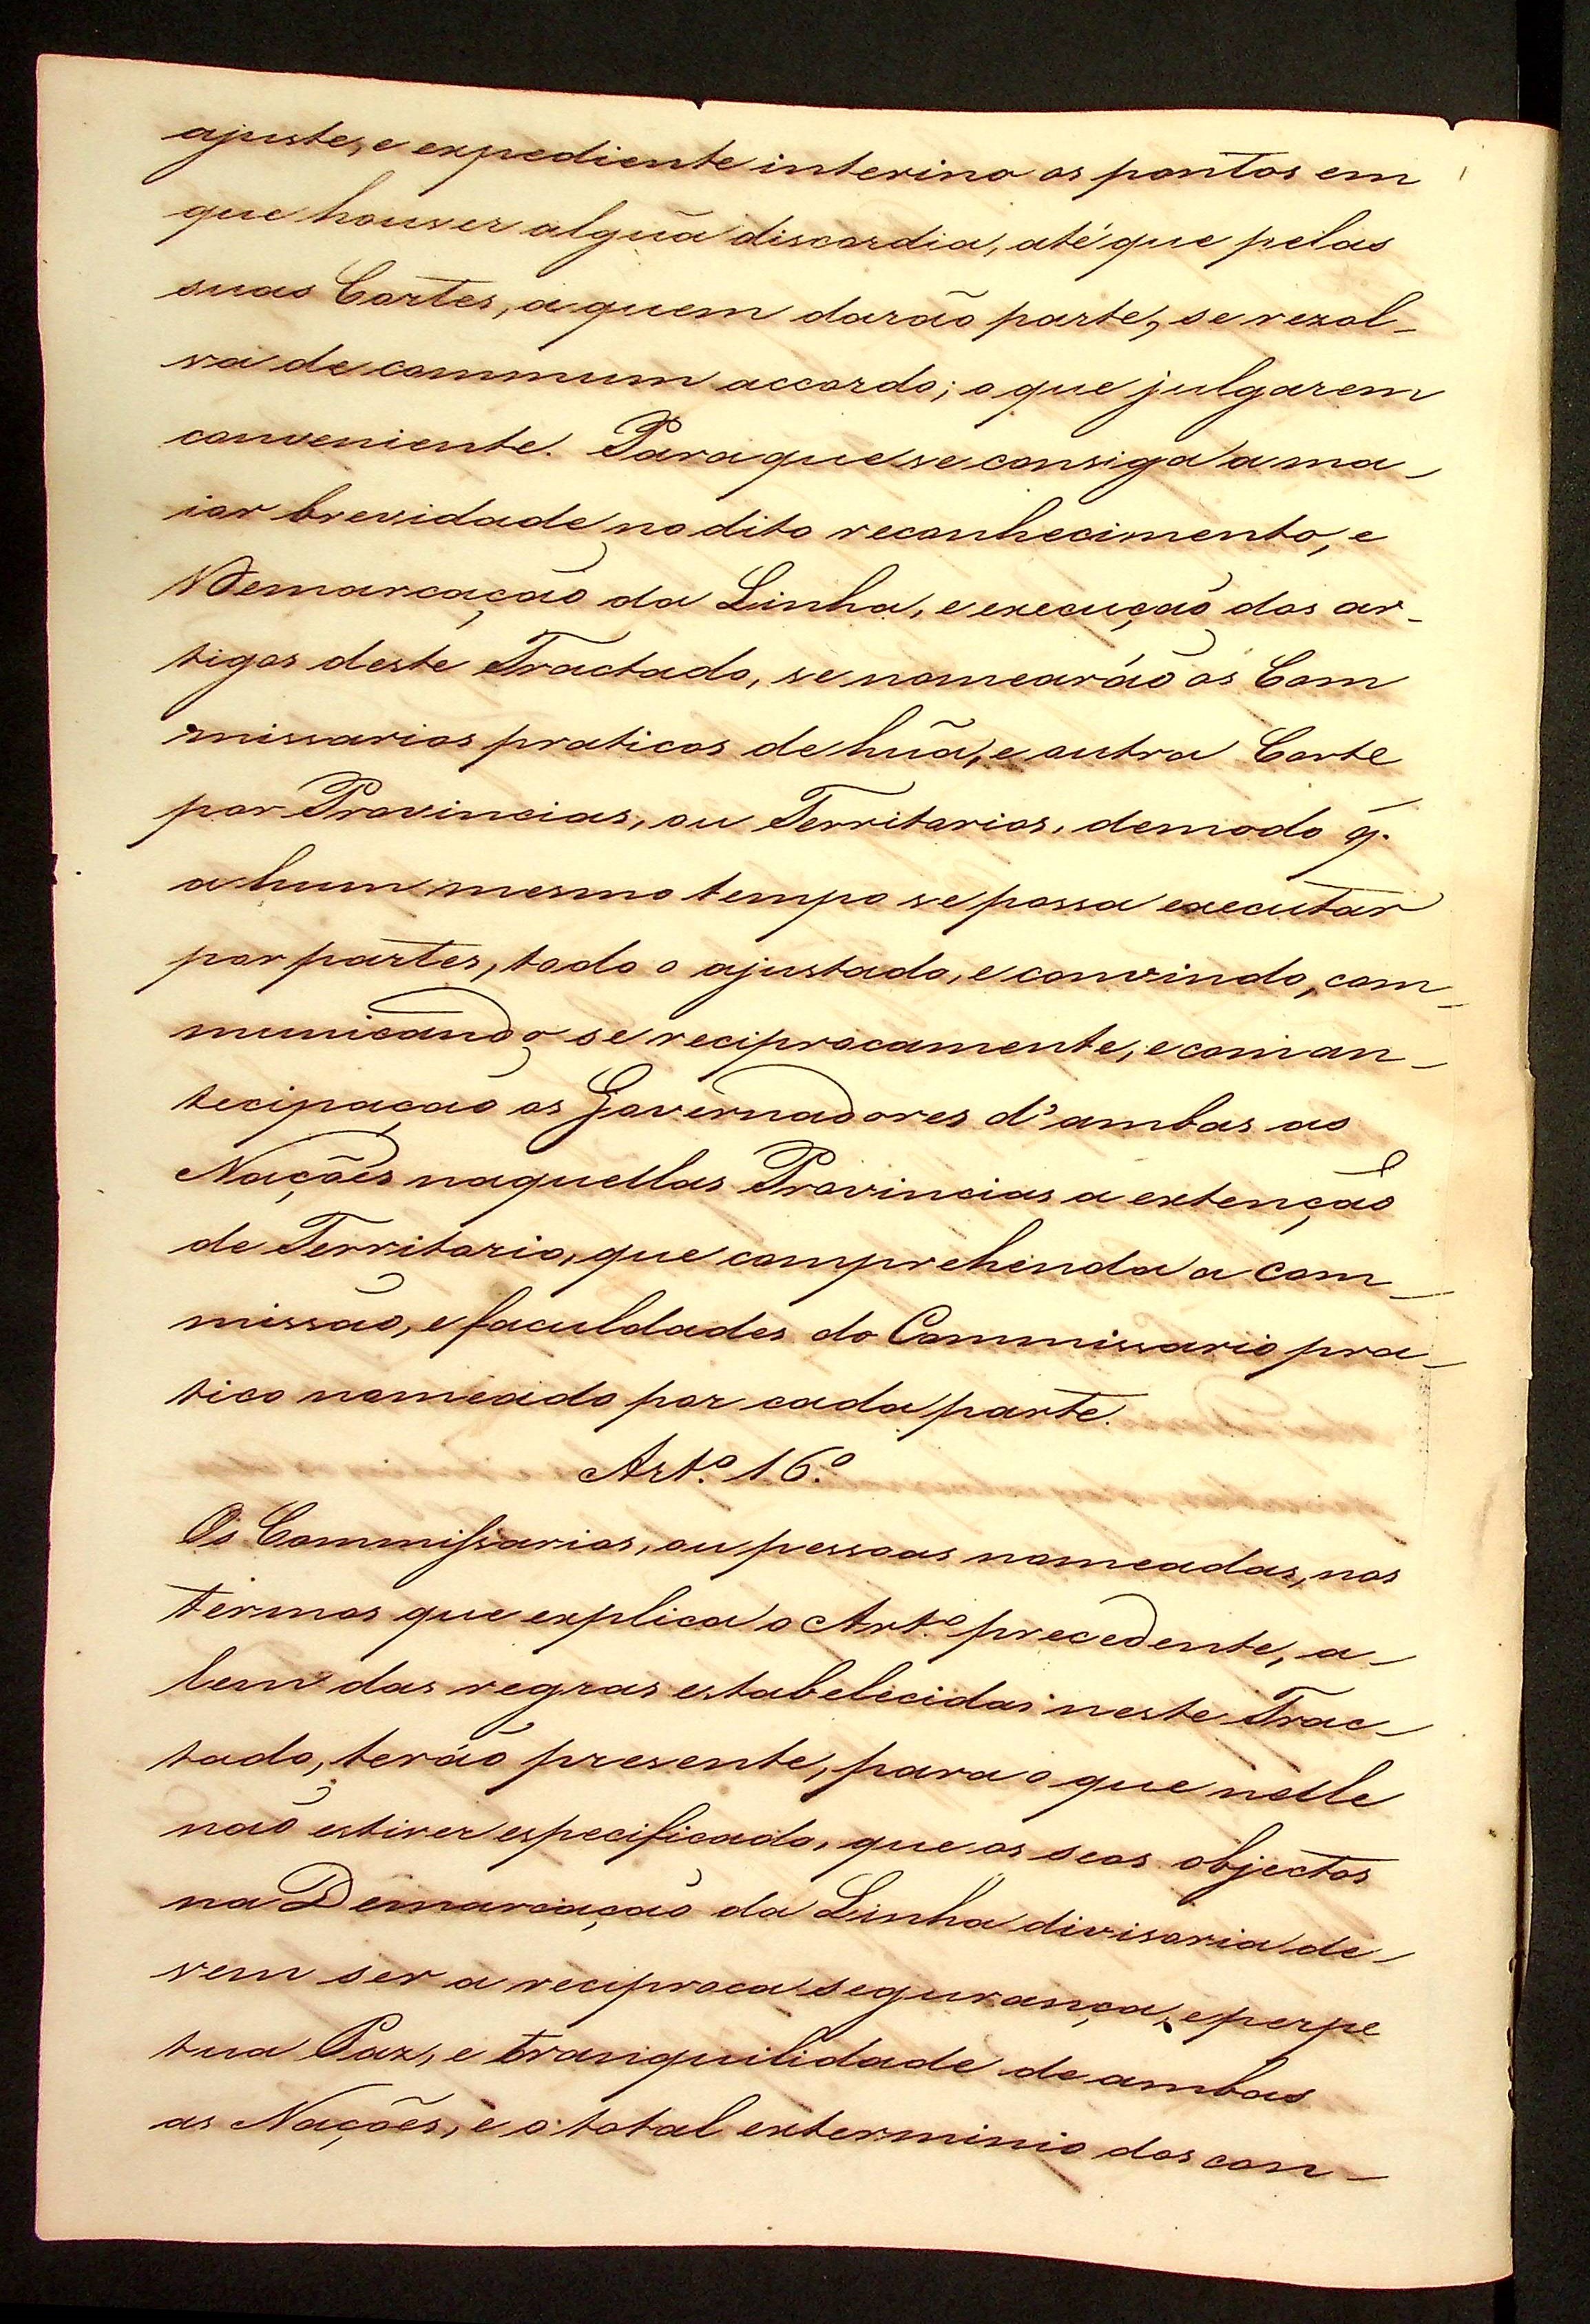 ajuste, e expediente interino os pontos em
que houver algũa discordia, até que pelas
suas Cortes, a quem darão parte, se rezol-
va de commum accordo; o que julgarem
conveniente. Para que se consiga a ma-
ior brevidade no dito reconhecimento, e
Demarcação da Linha, e execução dos ar-
tigos deste Tractado, se nomearáõ os Com
missarios praticos de hũa, e outra Corte
por Provincias, ou Territorios, de modo q̃.
a hum mesmo tempo se possa executar
por partes, todo o ajustado, e convindo, com-
municando se reciprocamente, e com an-
tecipação os Governadores d'ambas as
Nações naquellas Provincias a extenção
de Territorio, que comprehenda a com-
missão, e faculdades do Commissario pra-
tico nomeado por cada parte.
Art.º 16.º
Os Commiſsarios, ou pessoas nomeadas, nos
termos que explica o Art.º precedente, a-
lem das regras estabelecidas neste Trac-
tado, teráõ presente, para o que nelle
não estiver especificado, que os seos objectos
na Demarcação da Linha divisoria de-
vem ser a reciproca segurança, e perpe
tua Paz, e tranquilidade de ambas
as Nações, e o total exterminio dos con-